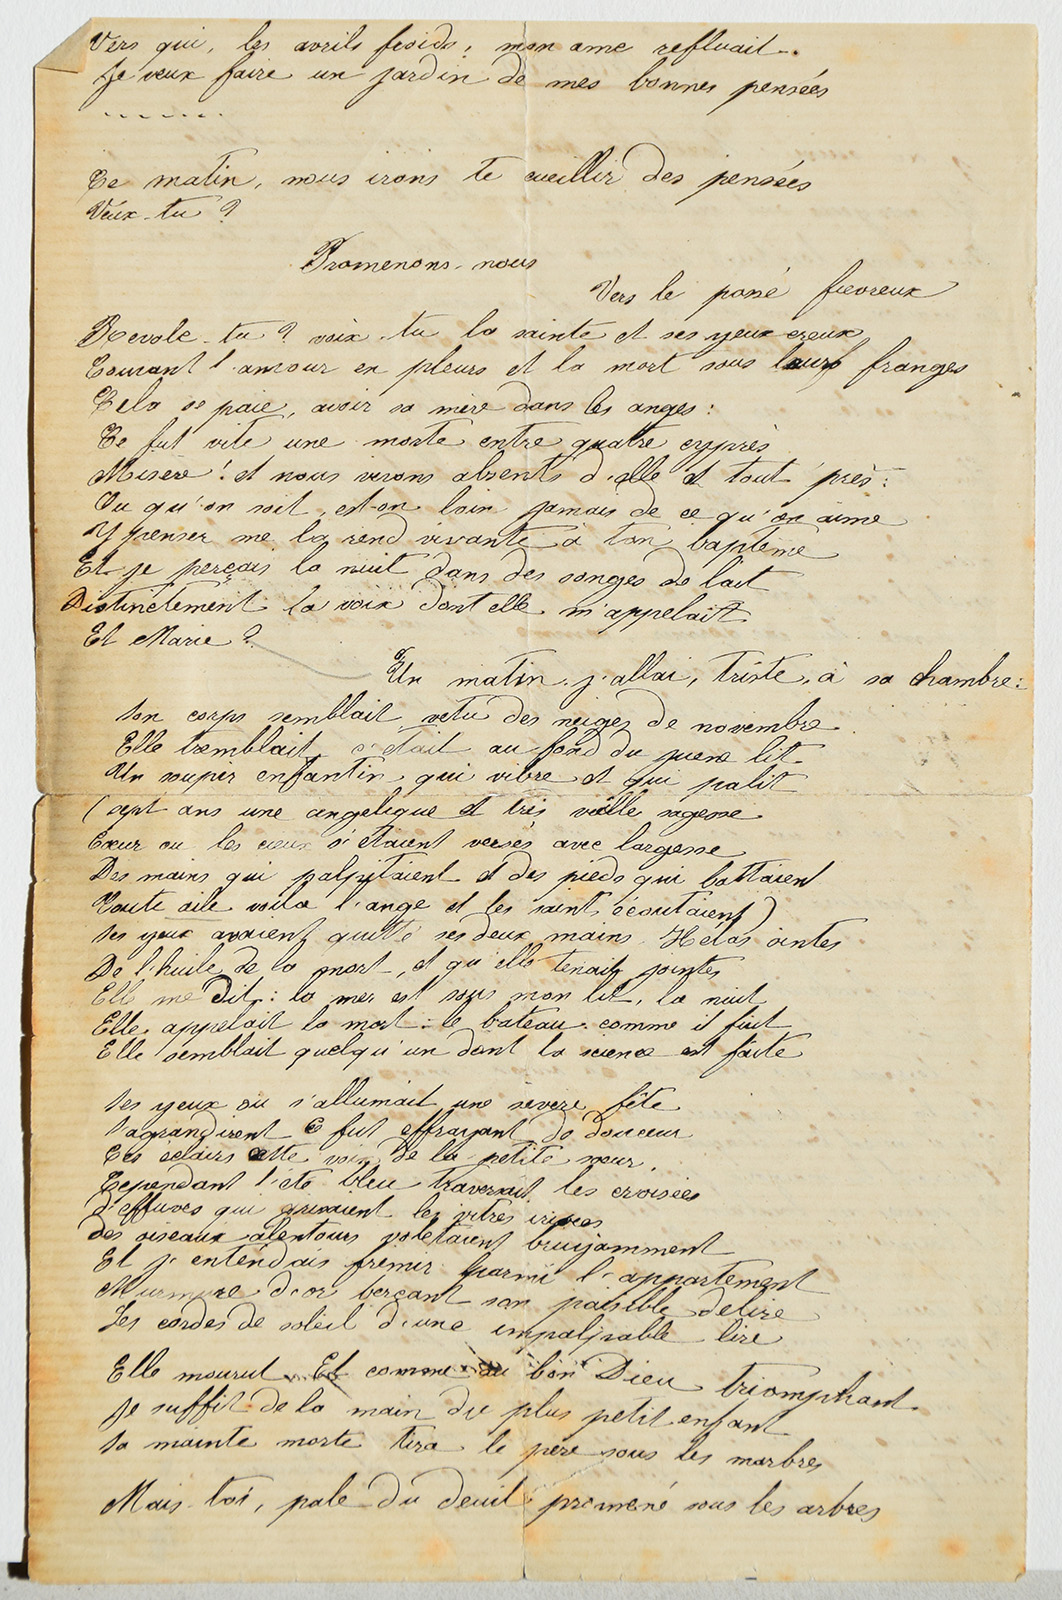 Vers qui, les avrils froids, mon ame refluait.
Je veux faire un jardin de mes bonnes pensées
Ce matin, nous irons te cueillir des pensées
Veux-tu ?
Promenons-nous
Vers le passé fievreux
Revole-tu ? vois-tu la sainte et ses yeux creux
Couvant l'amour en pleurs et la mort sous leurs franges
Cela se paie, avoir sa mère dans les anges :
Ce fut vite une morte entre quatre cyprès
Misère ! et nous vivons absents d'elle et tout près :
Ou qu'on soit, est-on loin jamais de ce qu'on aime
Y penser me la rend vivante à ton baptême
Et je perçois la nuit dans des songes de lait
Distinctement la voix dont elle m'appelait
Et Marie ?
Un matin, j'allai, triste, à sa chambre :
son corps semblait vetu des neiges de novembre
Elle tremblait, c'etait au fond du lit
Un soupir enfantin qui vibre et qui palit
(sept ans une angelique et très vieille sagesse
Cœur ou les cieux s'étaient versés avec largesse
Des mains qui palpitaient et des pieds qui battaient
Toute aile voila l'ange et les saints écoutaient)
ses yeux avaient quitté ses deux mains Hélas ointes
De l'huile de la mort, et qu'elle tenait jointes
Elle me dit : la mer est sous mon lit, la nuit
Elle appelait la mort : le bateau comme il fuit
Elle semblait quelqu'un dont la science est faite
ses yeux ou s'allumait une severe fête
s'agrandirent ce fut effrayant de douceur
Ces éclairs cette voix de la petite sœur,
Cependant l'été bleu traversait les croisées
d'effluves qui grisaient les vitres irisées
des oiseaux alentours voletaient bruyamment
Et j'entendais fremir parmi l'appartement
Murmure d'or berçant son paisible delire
Les cordes de soleil d'une impalpable lire
Elle mourut Et comme au bon Dieu triomphant
Je suffit de la main du plus petit enfant
sa mainte morte tira le père sous les marbres
Mais toi, pale du deuil promené sous les arbres